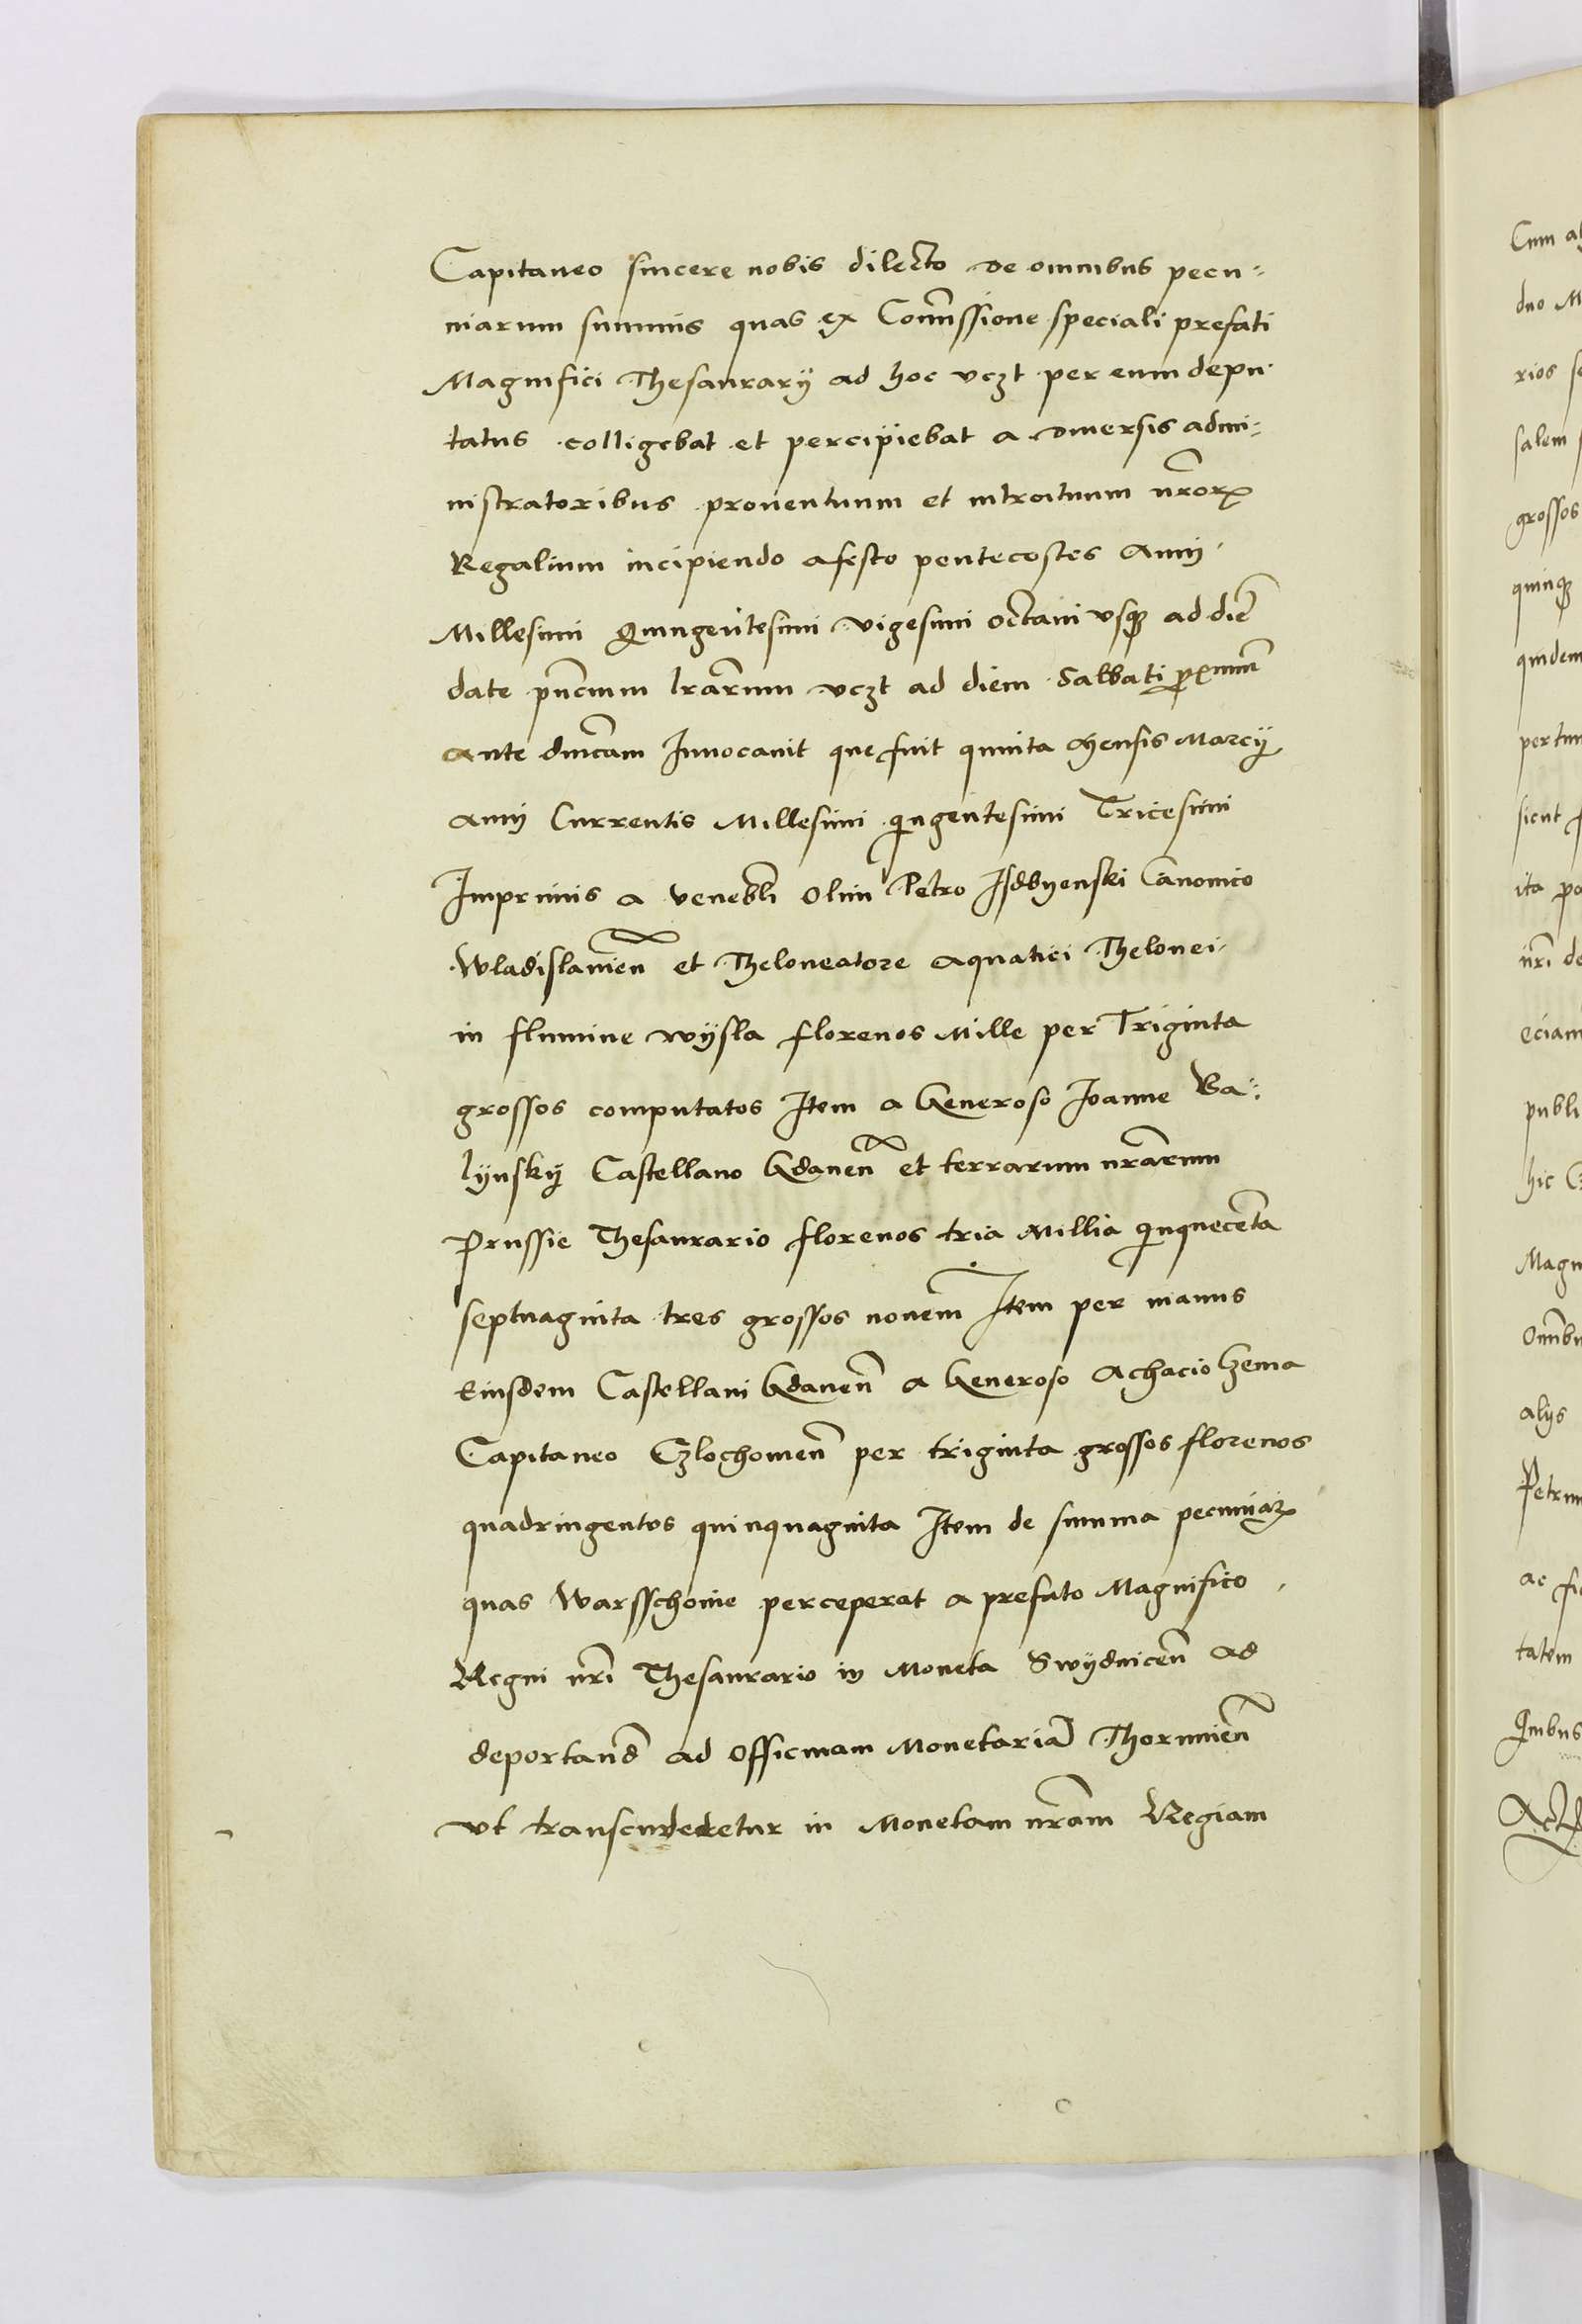 Capitaneo sincere nobis dilecto de omnibus pecu-
niarum summis quas ex Com̄issione speciali prefati
Magnifici Thesaurarij ad hoc vczt per eum depu-
tatus colligebat et percipiebat a diuersis admi-
nistratoribus prouentuum et introituum nr̄orꝫ
Regalium incipiendo a festo pentecostes Anni
Millesimi Quingentesimi vigesimi octaui vsqꝫ ad diē
date pn̄cium lr̄arum vczt ad diem Sabbati p̄ximū
Ante dn̄icam Inuocauit que fuit quinta Mensis Marcij
anni Currentis Millesimi qīngentesimi Tricesimi
Imprimis a venebl̄i Olim Petro Isdbyenski Canonico
Wladislauien̄ et Theloneatore Aquatici Thelonei
in flumine wysla florenos Mille per Triginta
grossos computatos Item a Generoso Ioanne Ba-
lynskÿ Castellano Gdanen̄ et terrarum nr̄arum
Prussie Thesaurario florenos tria Millia qīnquecēta
septuaginta tres grossos nouem Item per manus
Eiusdem Castellani Gdanen̄ a Generoso Achacio Czema
Capitaneo Czlochouien̄ per triginta grossos florenos
quadringentos quinquaginta Item de summa pecuniarꝫ
quas Warsschouie perceperat a prefato Magnifico
Regni nr̄i Thesaurario in Moneta Swydnicen̄ ad
deportand̄ ad Officinam Monetariā Thorunien̄
vt transcuderetur in Monetam nr̄am Regiam